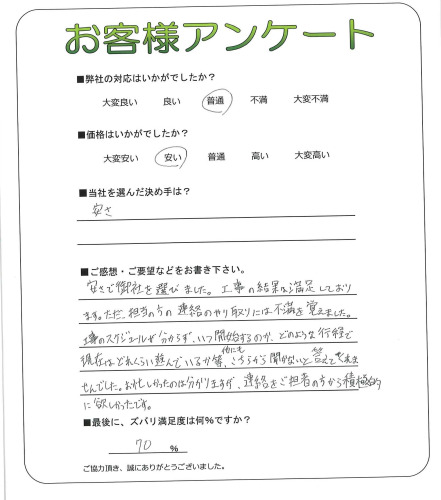 お客様アンケート
■弊社の対応はいかがでしたか？
大変良い 良い 普通 不満 大変不満
■価格はいかがでしたか？
大変安い 安い 普通 高い 大変高い
■当社を選んだ決め手は？
安さ
■ご感想・ご要望などをお書き下さい。
安さで御社を選びました。工事の結果は満足しており
ます。ただ、担当の方の連絡のやり取りには不満を覚えました。
工事のスケジュールが分からず、いつ開始するのか、どのような行程で
現在はどれくらい進んでいるか等、他にもこちらから聞かないと答えて
せんでした。お忙しかったのは分かりますが、連絡をご担当の方から積極的
に欲しかったです。
■最後に、ズバリ満足度は何％ですか？
70 ％
ご協力頂き、誠にありがとうございました。